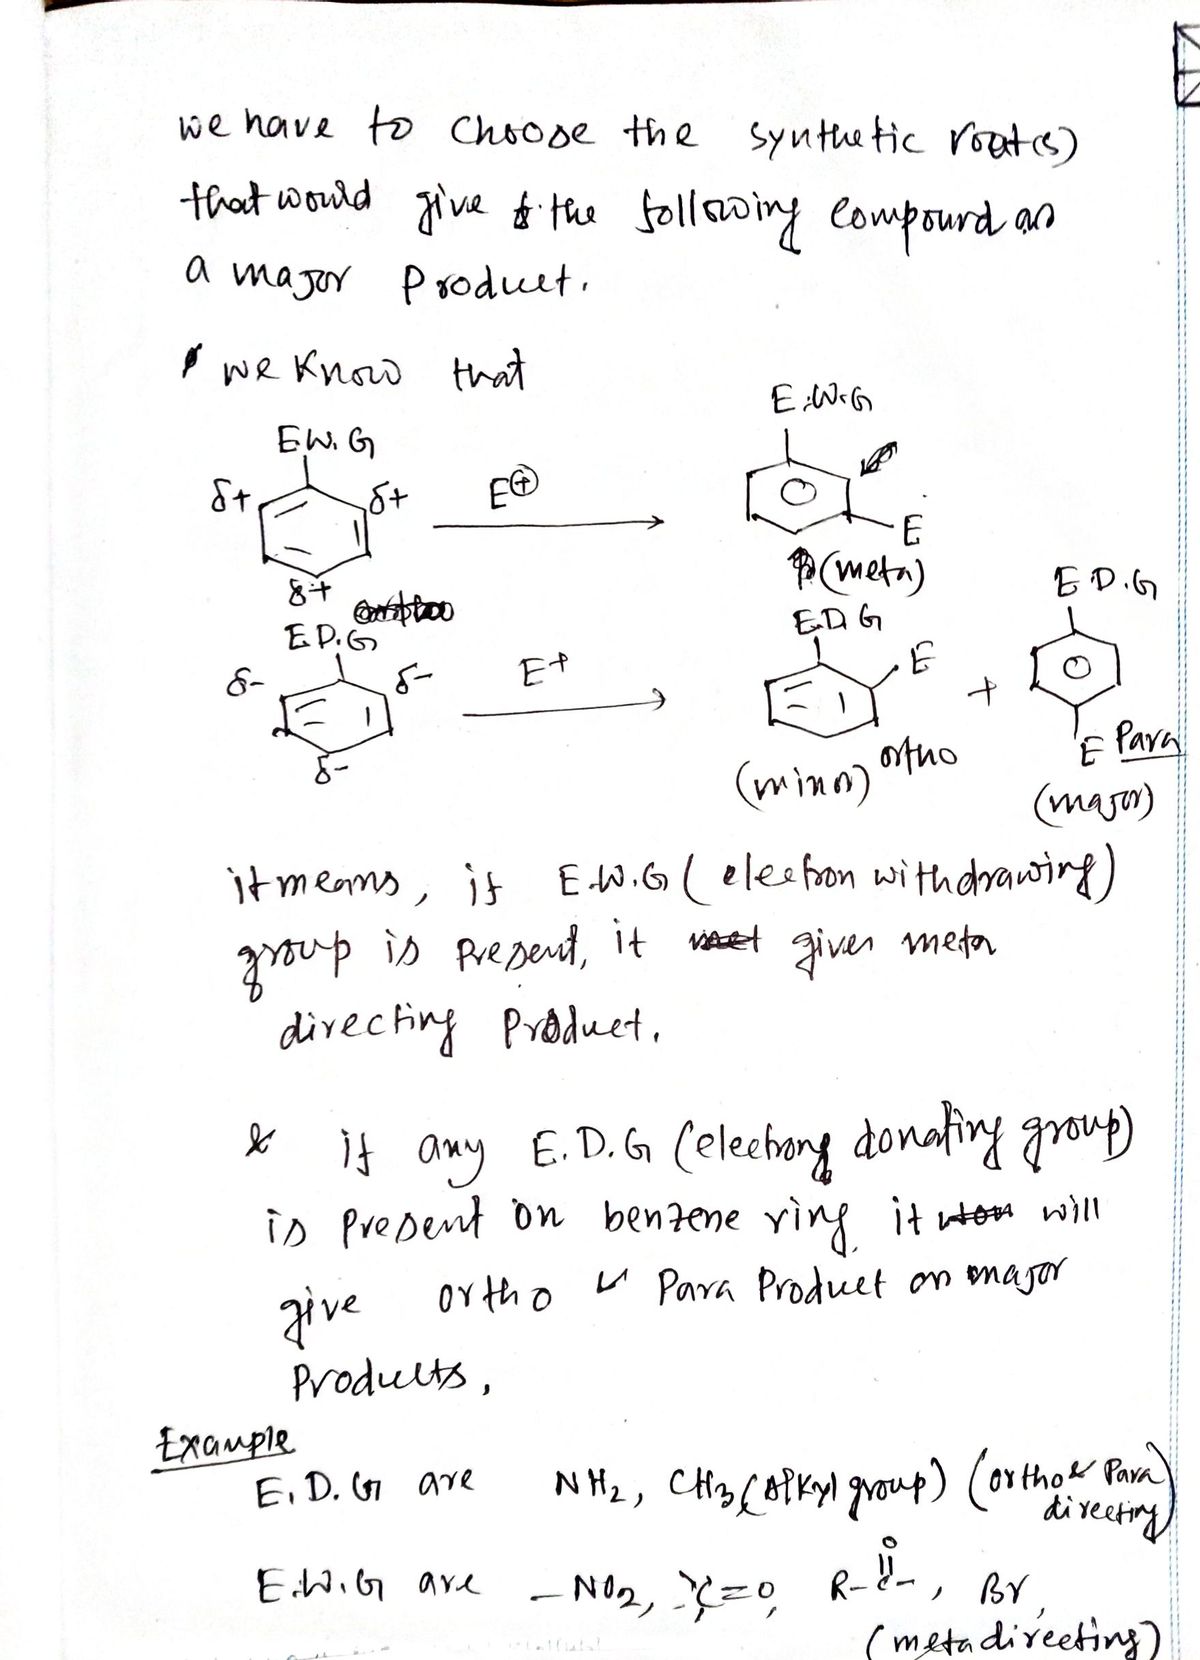 we have to choose the synthetic root(s)
that would give the following compound as
a major Product.
we Know that
E.W.G
E.W.G
δ+ δ+ E⊕
E
δ+
(meta)
E.D.G
E.D.G E.D.G
δ- δ- E+ E + 
δ- E Para
(minor) ortho
(major)
it means, if E.W.G (electron withdrawing)
group is present, it gives meta
directing Product.
& if any E.D.G (electrong donating group)
is present on benzene ring, it will
give ortho & Para Product as major
Products,
Example
E.D.G are NH2, CH3 (Alkyl group) (ortho & Para directing)
E.W.G are -NO2, >C=O, R-C(=O)-, Br, (meta directing)